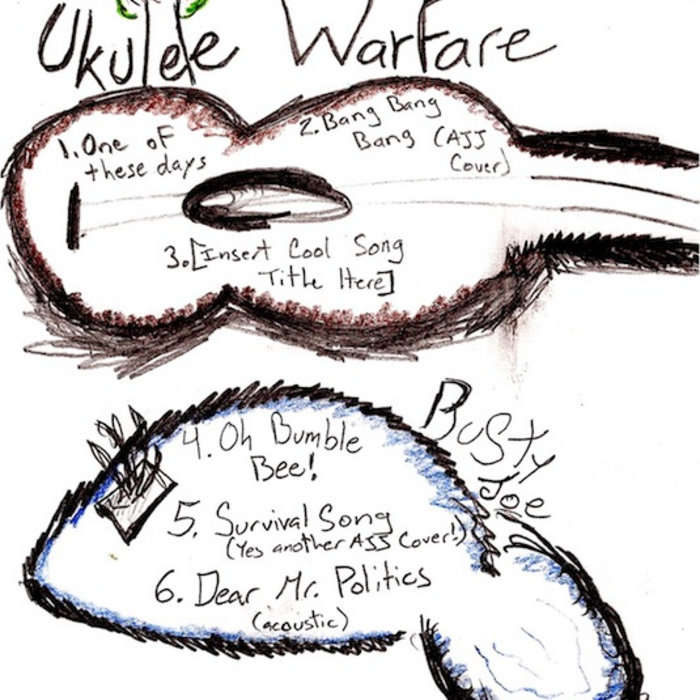 Ukulele Warfare
1. One of
these days
2. Bang Bang
Bang (AJJ
Cover)
3. [Insert Cool Song
Title Here]
Busty
Joe
4. Oh Bumble
Bee!
5. Survival Song
(Yes another AJJ Cover!)
6. Dear Mr. Politics
(acoustic)